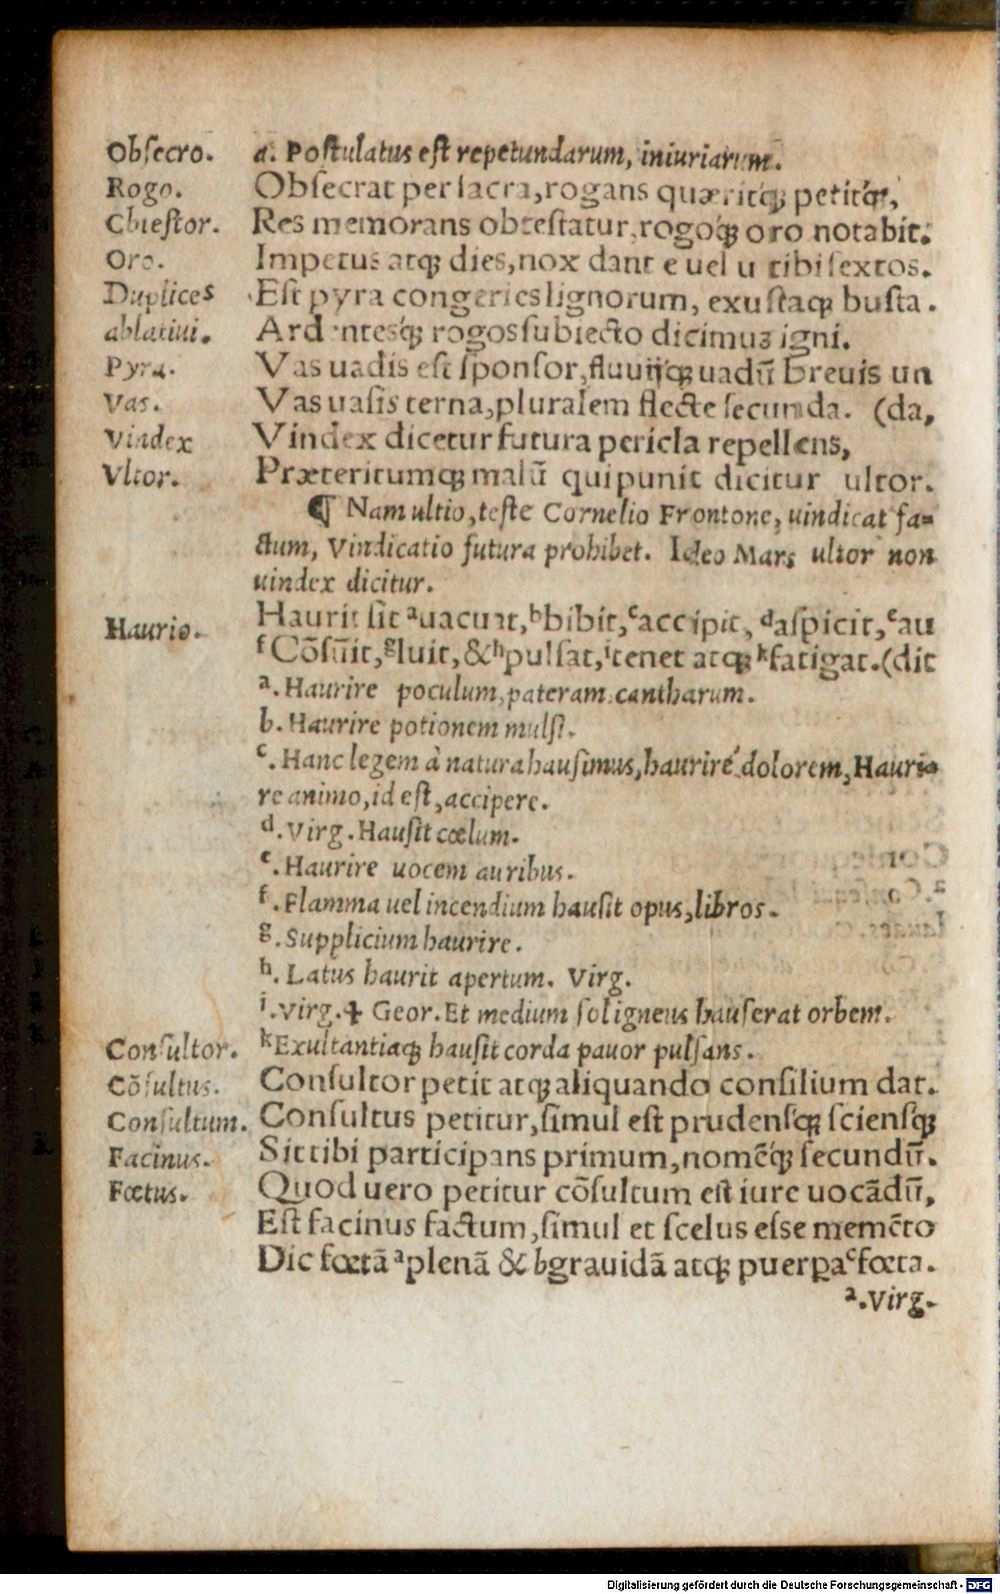 Obſecro. a. Poſtulatus eſt repetundarum, iniuriarum.
Rogo. Obſecrat per ſacra, rogans quæritq́; petitq́;,
Obteſtor. Res memorans obteſtatur, rogoq́; oro notabit.
Oro. Impetus atq; dies, nox dant e uel u tibi ſextos.
Duplices Eſt pyra congeries lignorum, exuſtaq; buſta.
ablatiui. Ardentesq́; rogos ſubiecto dicimus igni.
Pyra. Vas uadis eſt ſponſor, fluuijq́; uadū breuis un
Vas. Vas uaſis terna, pluralem flecte ſecunda. (da,
Vindex Vindex dicetur futura pericla repellens,
Vltor. Præteritumq; malū qui punit dicitur ultor.
¶ Nam ultio, teſte Cornelio Frontone, uindicat fa-
ctum, Vindicatio futura prohibet. Ideo Mars ultor non
uindex dicitur.
Haurio. Haurit ſit ᵃuacuat, ᵇbibit, ᶜaccipit, ᵈaſpicit, ᵉau
ᶠCōſūit, ᵍluit, & ʰpulſat, ⁱtenet atq; ᵏfatigat. (dit
ᵃ. Haurire poculum, pateram, cantharum.
b. Haurire potionem mulſi.
ᶜ. Hanc legem à natura hauſimus, haurire dolorem, Hauri-
re animo, id eſt, accipere.
ᵈ. Virg. Hauſit cœlum.
ᵉ. Haurire uocem auribus.
ᶠ. Flamma uel incendium hauſit opus, libros.
ᵍ. Supplicium haurire.
ʰ. Latus haurit apertum. Virg.
ⁱ. Virg. 4 Geor. Et medium ſol igneus hauſerat orbem.
Conſultor. ᵏExultantiaq; hauſit corda pauor pulſans.
Cōſultus. Conſultor petit atq; aliquando conſilium dat.
Conſultum. Conſultus petitur, ſimul eſt prudenſq; ſcienſq;
Facinus. Sit tibi participans primum, nomēq́; ſecundū.
Fœtus. Quod uero petitur cōſultum eſt iure uocādū,
Eſt facinus factum, ſimul et ſcelus eſse memēto
Dic fœtā ᵃplenā & bgrauidā atq; puerꝑa ᶜfœta.
ᵃ. Virg.
Digitalisierung gefördert durch die Deutsche Forschungsgemeinschaft - DFG